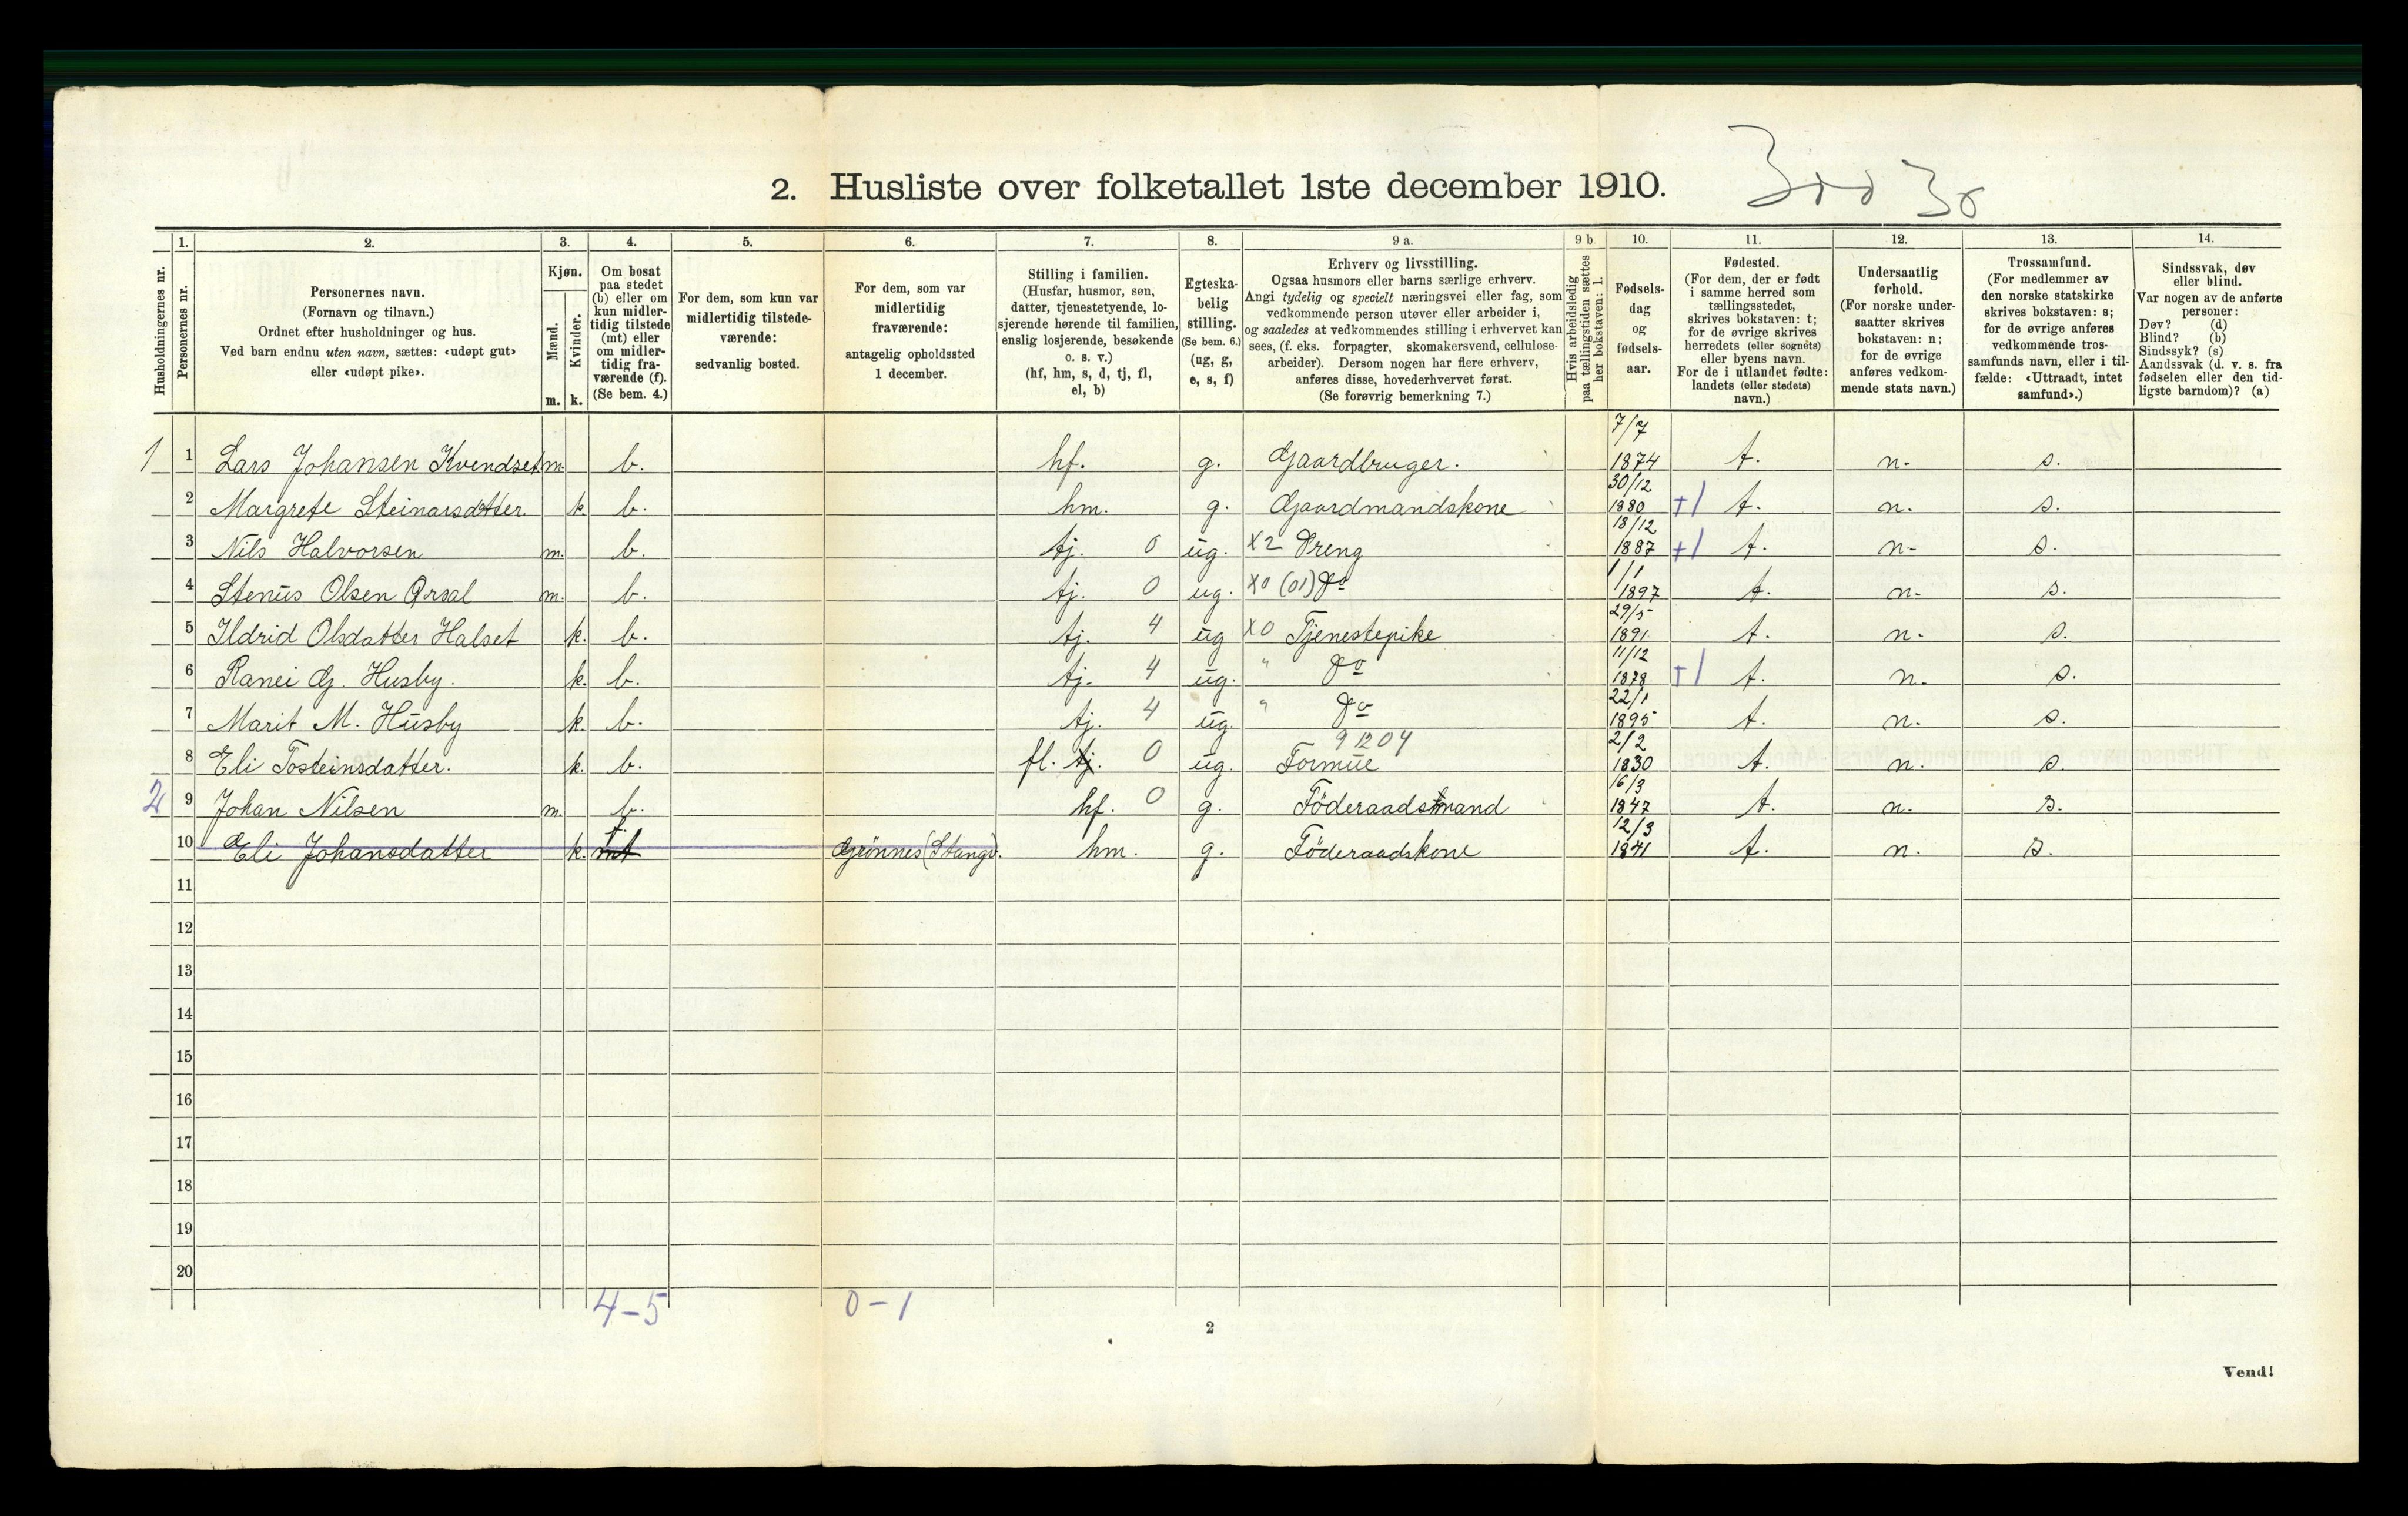 2. Husliste over folketallet 1ste december 1910.
Husholdningernes nr.
1.
Personernes nr.
2.
Personernes navn.
(Fornavn og tilnavn.)
Ordnet efter husholdninger og hus.
Ved barn endnu uten navn, sættes: «udøpt gut»
eller «udøpt pike».
3.
Kjøn.
Mænd.
Kvinder.
m. k.
4.
Om bosat
paa stedet
(b) eller om
kun midler-
tidig tilstede
(mt) eller
om midler-
tidig fra-
værende (f).
(Se bem. 4.)
5.
For dem, som kun var
midlertidig tilstede-
værende:
sedvanlig bosted.
6.
For dem, som var
midlertidig
fraværende:
antagelig opholdssted
1 december.
7.
Stilling i familien.
(Husfar, husmor, søn,
datter, tjenestetyende, lo-
sjerende hørende til familien,
enslig losjerende, besøkende
o. s. v.)
(hf, hm, s, d, tj, fl,
el, b)
8.
Egteska-
belig
stilling.
(Se bem. 6.)
(ug, g,
e, s, f)
9 a.
Erhverv og livsstilling.
Ogsaa husmors eller barns særlige erhverv.
Angi tydelig og specielt næringsvei eller fag, som
vedkommende person utøver eller arbeider i,
og saaledes at vedkommendes stilling i erhvervet kan
sees, (f. eks. forpagter, skomakersvend, cellulose-
arbeider). Dersom nogen har flere erhverv,
anføres disse, hovederhvervet først.
(Se forøvrig bemerkning 7.)
9 b
Hvis arbeidsledig
paa tællingstiden sættes
her bokstaven: l.
10.
Fødsels-
dag
og
fødsels-
aar.
11.
Fødested.
(For dem, der er født
i samme herred som
tællingsstedet,
skrives bokstaven: t;
for de øvrige skrives
herredets (eller sognets)
eller byens navn.
For de i utlandet fødte:
landets (eller stedets)
navn.)
12.
Undersaatlig
forhold.
(For norske under-
saatter skrives
bokstaven: n;
for de øvrige
anføres vedkom-
mende stats navn.)
13.
Trossamfund.
(For medlemmer av
den norske statskirke
skrives bokstaven: s;
for de øvrige anføres
vedkommende tros-
samfunds navn, eller i til-
fælde: «Uttraadt, intet
samfund».)
14.
Sindssvak, døv
eller blind.
Var nogen av de anførte
personer:
Døv? (d)
Blind? (b)
Sindssyk? (s)
Aandssvak (d. v. s. fra
fødselen eller den tid-
ligste barndom)? (a)
1 1 Lars Johansen Kvendset m. b. hf. g. Gaardbruger. 7/7 1874 t. n. s.
2 Margrete Steinarsdatter. k. b. hm. g. Gaardmandskone 30/12 1880 +1 t. n. s.
3 Nils Halvorsen m. b. tj. 0 ug. x2 Dreng 18/12 1887 +1 t. n. s.
4 Stenus Olsen m. b. tj. 0 ug. x0 (01) Do 1/1 1897 t. n. s.
5 Ildrid Olsdatter Halset k. b. tj. 4 ug x0 Tjenestepike 29/5 1891 t. n. s.
6 Ranei G. Husby. k. b. tj. 4 ug. " Do 11/12 1878 +1 t. n. s.
7 Marit M. Husby k. b. tj. 4 ug. " Do 22/1 1895 t. n. s.
8 Eli Tosteinsdatter. k. b. fl. tj. 0 ug. 91204 Formue 2/2 1830 t. n. s.
2 9 Johan Nilsen m. b. hf. 0 g. Föderaadsmand 16/3 1847 t. n. s.
10 Eli Johansdatter k. mt f. Grönnes (Stangv. hm. g. Föderaadskone 12/3 1841 t. n. s.
11
12
13
14
15
16
17
18
19
20
4-5 0-1
2
Vend!